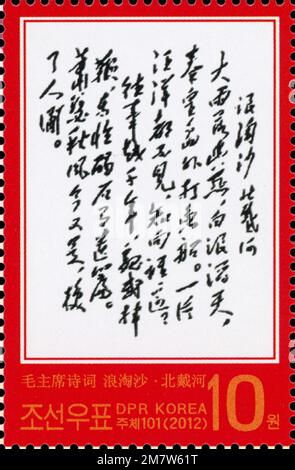 浪淘沙 北戴河
大雨落幽燕,白浪滔天,
秦皇岛外打鱼船。一片
汪洋都不见,知向谁边?
往事越千年,魏武挥
鞭,东临碣石有遗篇。
萧瑟秋风今又是,换
了人间。
毛主席诗词 浪淘沙·北戴河
조선우표 DPR KOREA 10원
주체101(2012)
alamy - 2JMW611